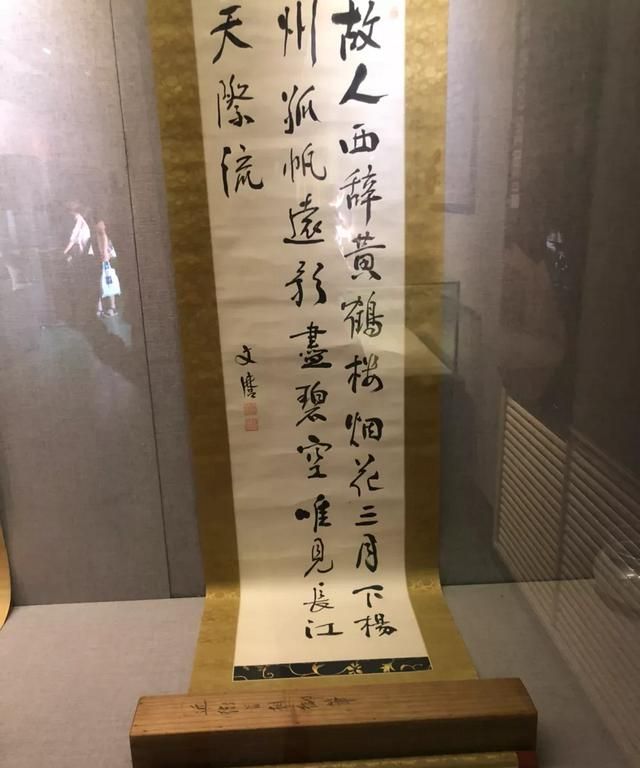 故人西辞黄鶴楼烟花三月下楊
州孤帆遠影盡碧空唯見長江
天際流
文麿
近衛筆